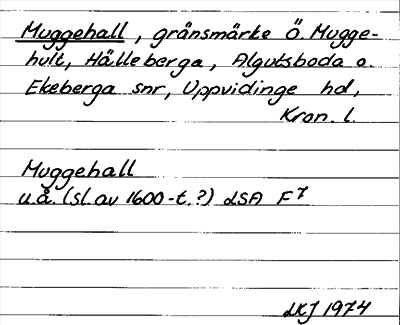 Muggehall, gränsmärke Ö. Mugge-
hult, Hälleberga, Algutsboda o.
Ekeberga snr, Uppvidinge hd,
Kron. l.
Muggehall
u.å. (sl. av 1600-t.?) LSA F7
LKJ 1974